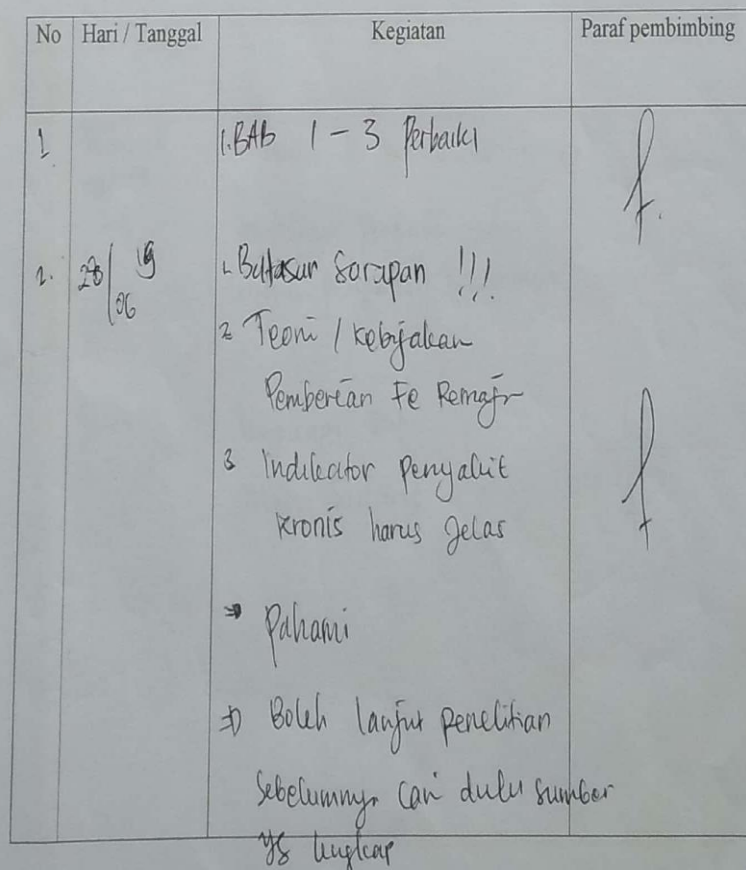 No Hari / Tanggal Kegiatan Paraf pembimbing
1 1. BAB 1 - 3 Perbaiki
2. 28/06 19 1. Batasan Sarapan !!!
2 Teori / Kebijakan
Pemberian Fe Remaja
3 Indikator Penyakit
Kronis harus Jelas
⇒ Pahami
⇒ Boleh lanjut penelitian
Sebelumnya Cari dulu sumber
yg lengkap